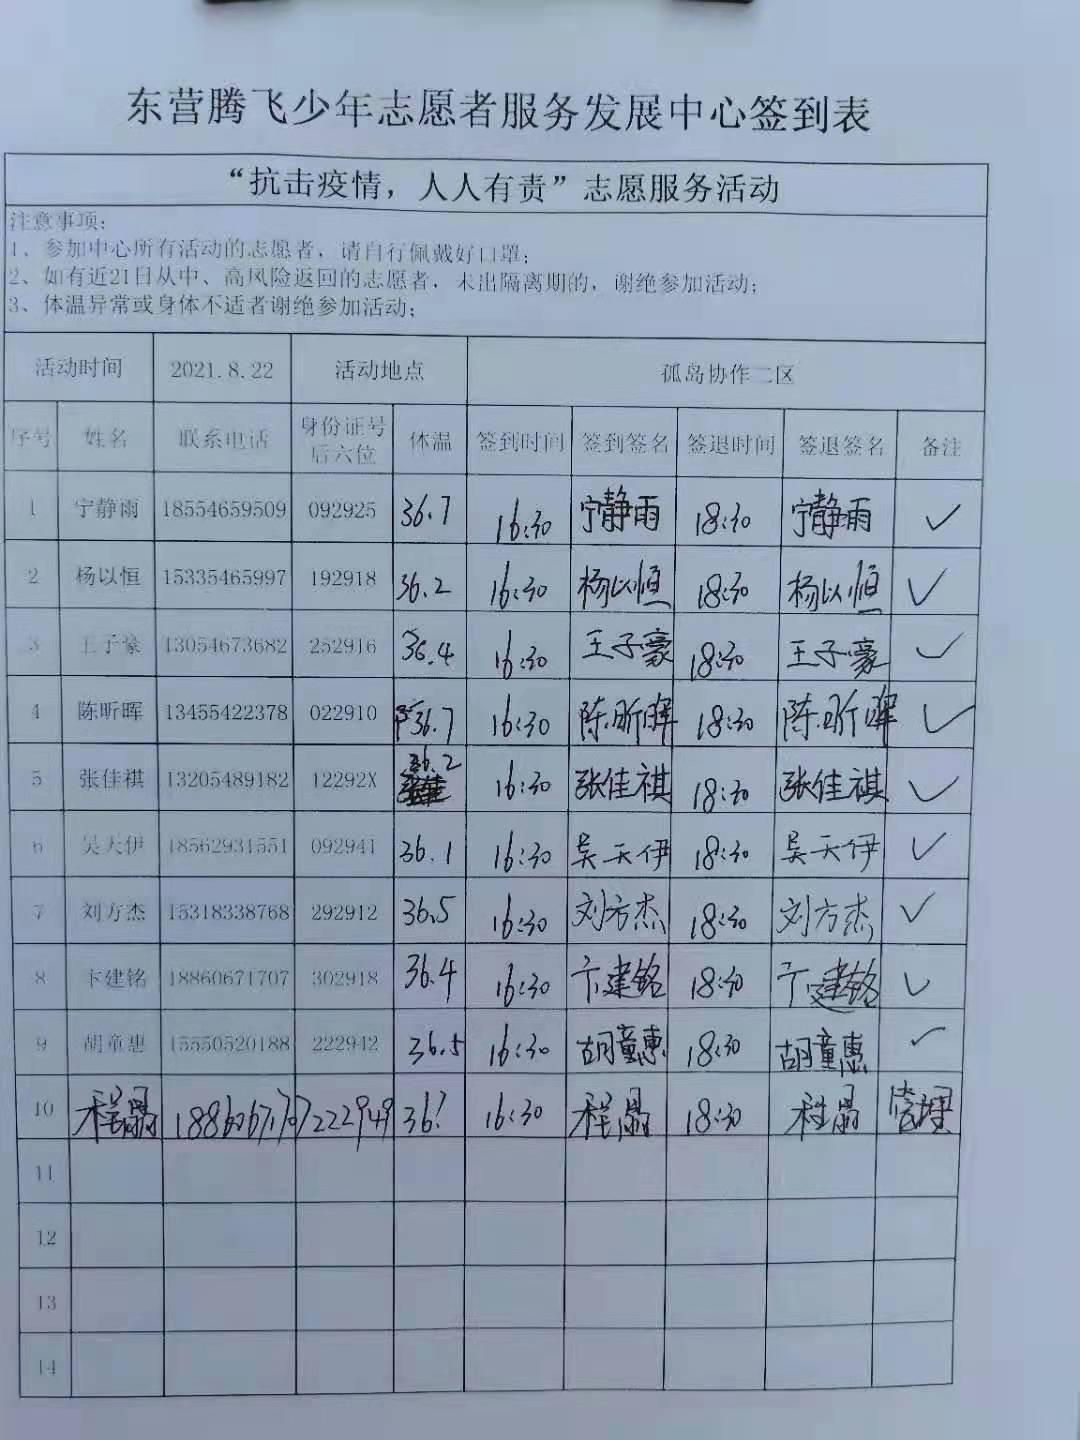 东营腾飞少年志愿者服务发展中心签到表
“抗击疫情，人人有责”志愿服务活动
注意事项：
1、参加中心所有活动的志愿者，请自行佩戴好口罩；
2、如有近21日从中、高风险返回的志愿者，未出隔离期的，谢绝参加活动；
3、体温异常或身体不适者谢绝参加活动；
活动时间 2021.8.22 活动地点 孤岛协作二区
序号 姓名 联系电话 身份证号后六位 体温 签到时间 签到签名 签退时间 签退签名 备注
1 宁静雨 18554659509 092925 36.7 16:30 宁静雨 18:30 宁静雨 ✓
2 杨以恒 15335465997 192918 36.2 16:30 杨以恒 18:30 杨以恒 ✓
3 王子豪 13054673682 252916 36.4 16:30 王子豪 18:30 王子豪 ✓
4 陈昕晖 13455422378 022910 36.7 16:30 陈昕晖 18:30 陈昕晖 ✓
5 张佳祺 13205489182 12292X 36.2 16:30 张佳祺 18:30 张佳祺 ✓
6 吴天伊 18562931551 092941 36.1 16:30 吴天伊 18:30 吴天伊 ✓
7 刘方杰 15318338768 292912 36.5 16:30 刘方杰 18:30 刘方杰 ✓
8 卞建铭 18860671707 302918 36.4 16:30 卞建铭 18:30 卞建铭 ✓
9 胡童惠 15550520188 222942 36.5 16:30 胡童惠 18:30 胡童惠 ✓
10 程晶 18860671707 222949 16:30 程晶 18:30 程晶 管理
11
12
13
14